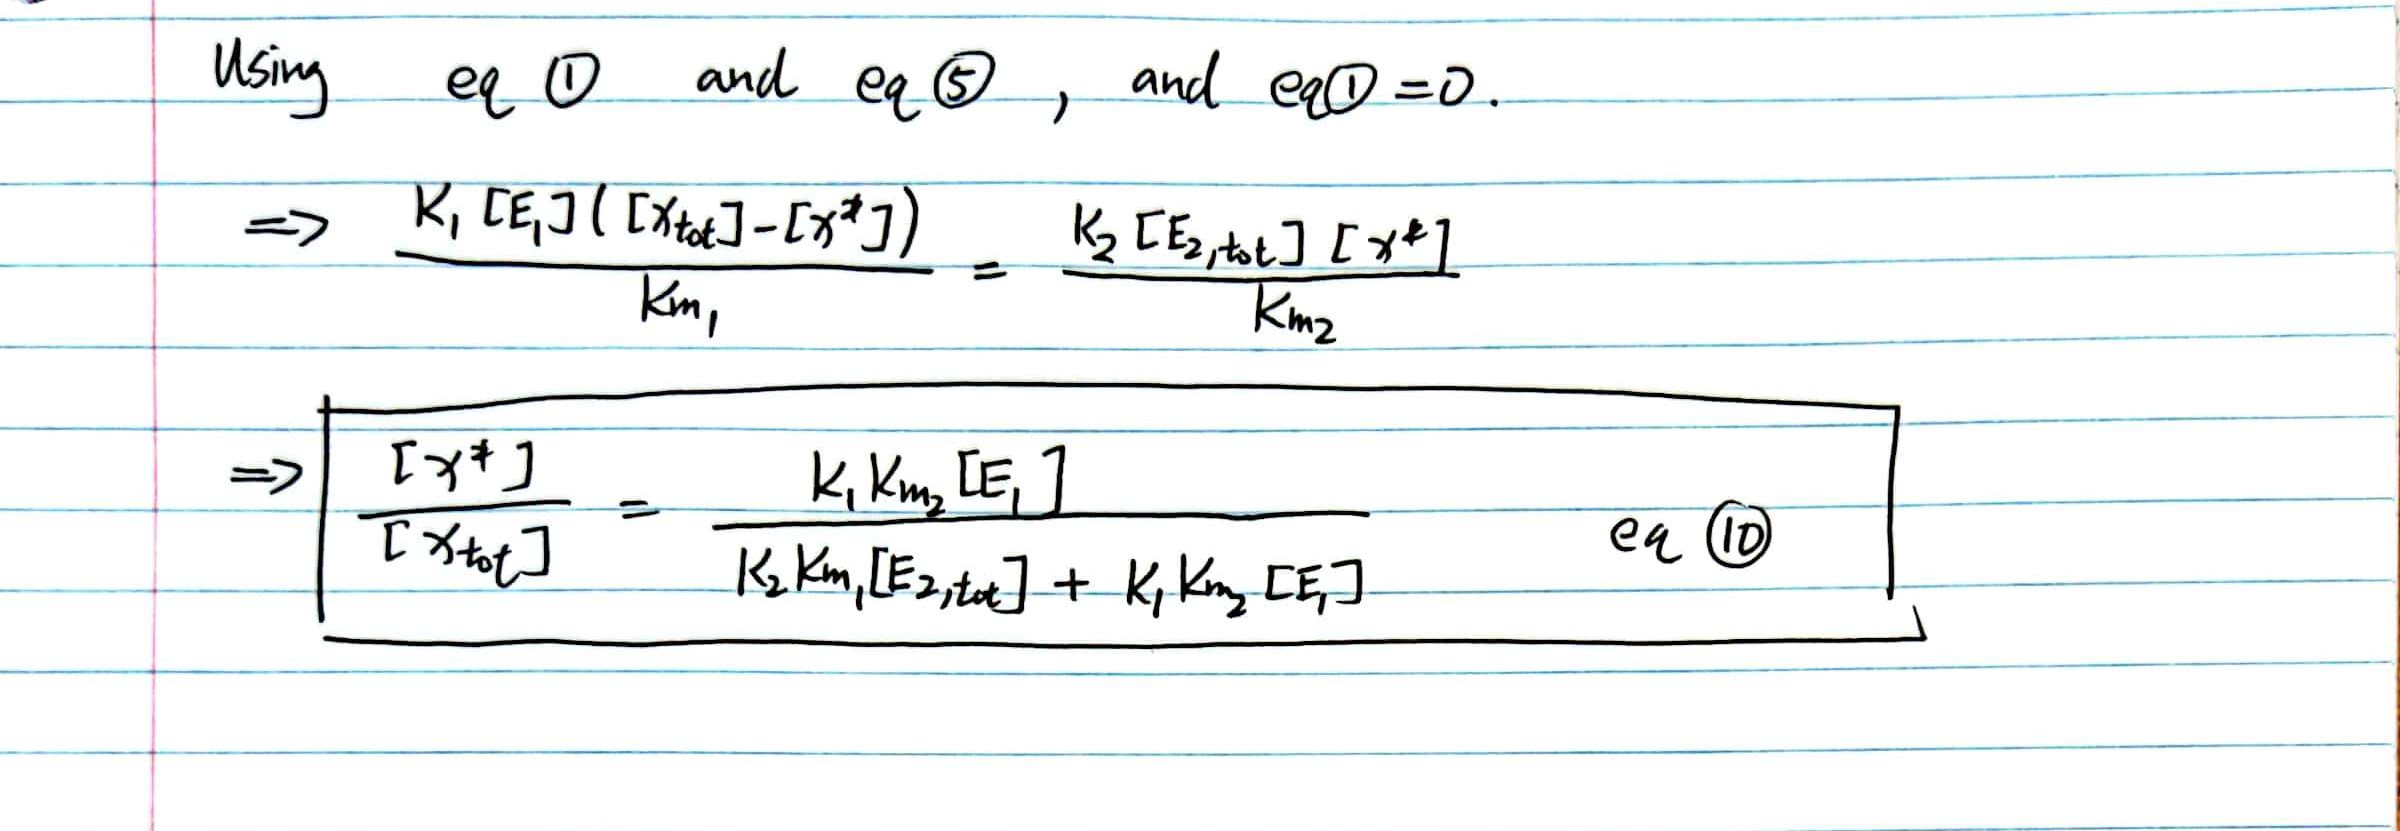 Using eq ① and eq ⑤ , and eq① = 0.
=> K₁ [E₁] ( [Xtot] - [X*] ) / Km₁ = K₂ [E₂,tot] [X*] / Km₂
=> [X*] / [Xtot] = K₁ Km₂ [E₁] / K₂ Km₁ [E₂,tot] + K₁ Km₂ [E₁] eq ⑩